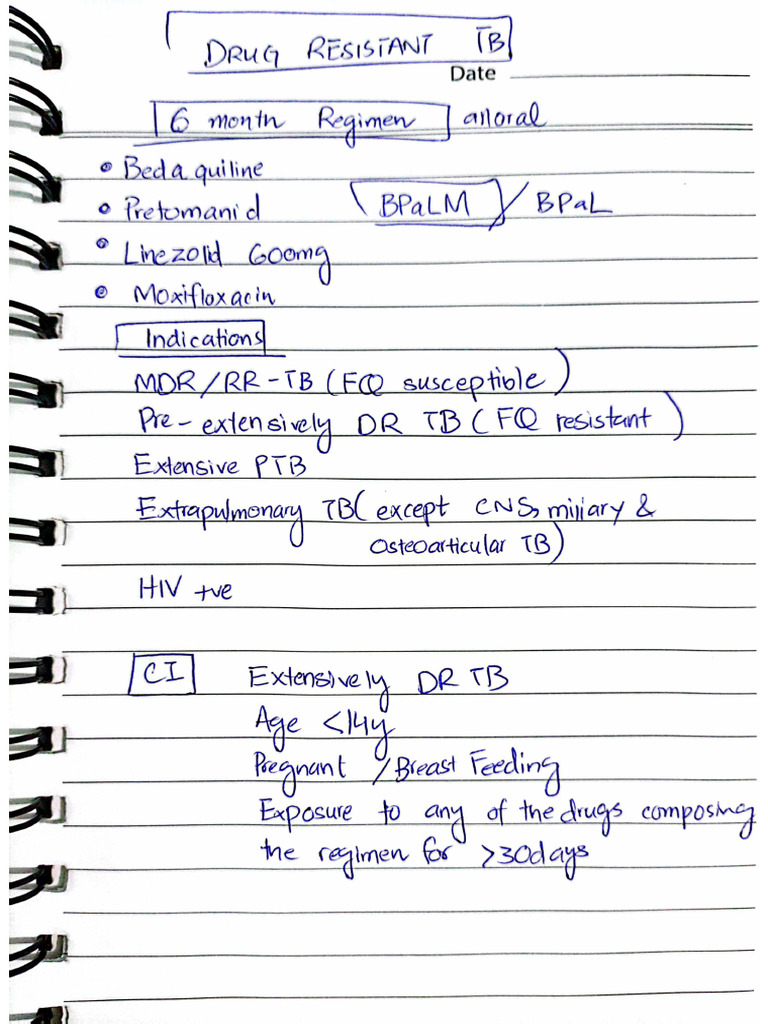 DRUG RESISTANT TB
Date
6 month Regimen alloral
• Bedaquiline
• Pretomanid BPaLM / BPaL
• Linezolid 600mg
• Moxifloxacin
Indications
MDR/RR-TB (FQ susceptible)
Pre-extensively DR TB (FQ resistant)
Extensive PTB
Extrapulmonary TB (except CNS, miliary &
Osteoarticular TB)
HIV +ve
CI Extensively DR TB
Age <14y
Pregnant / Breast Feeding
Exposure to any of the drugs composing
the regimen for >30days